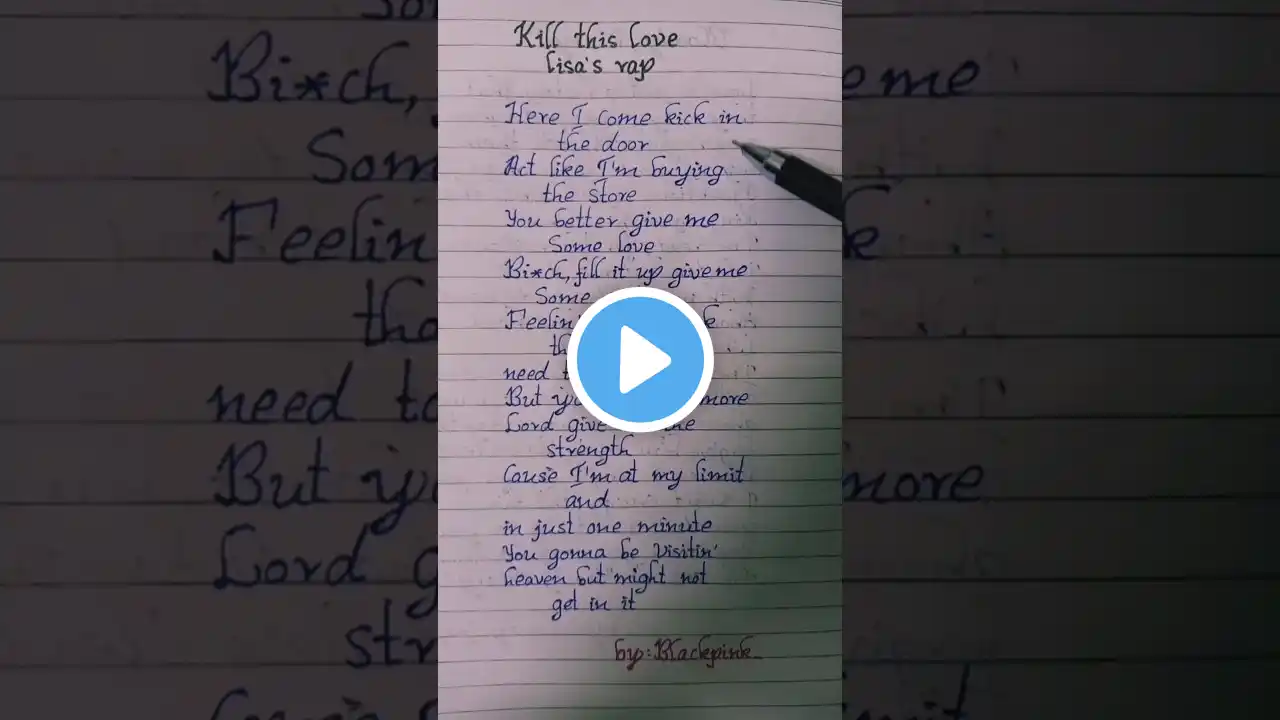 Kill this love
Lisa's rap
Here I come kick in
the door
Act like I'm buying
the store
You better give me
Some love
Bi*ch, fill it up give me
Some
Feelin
need
But more
Lord give
strength
Cause I'm at my limit
and
in just one minute
You gonna be visitin'
heaven but might not
get in it
by: Blackpink